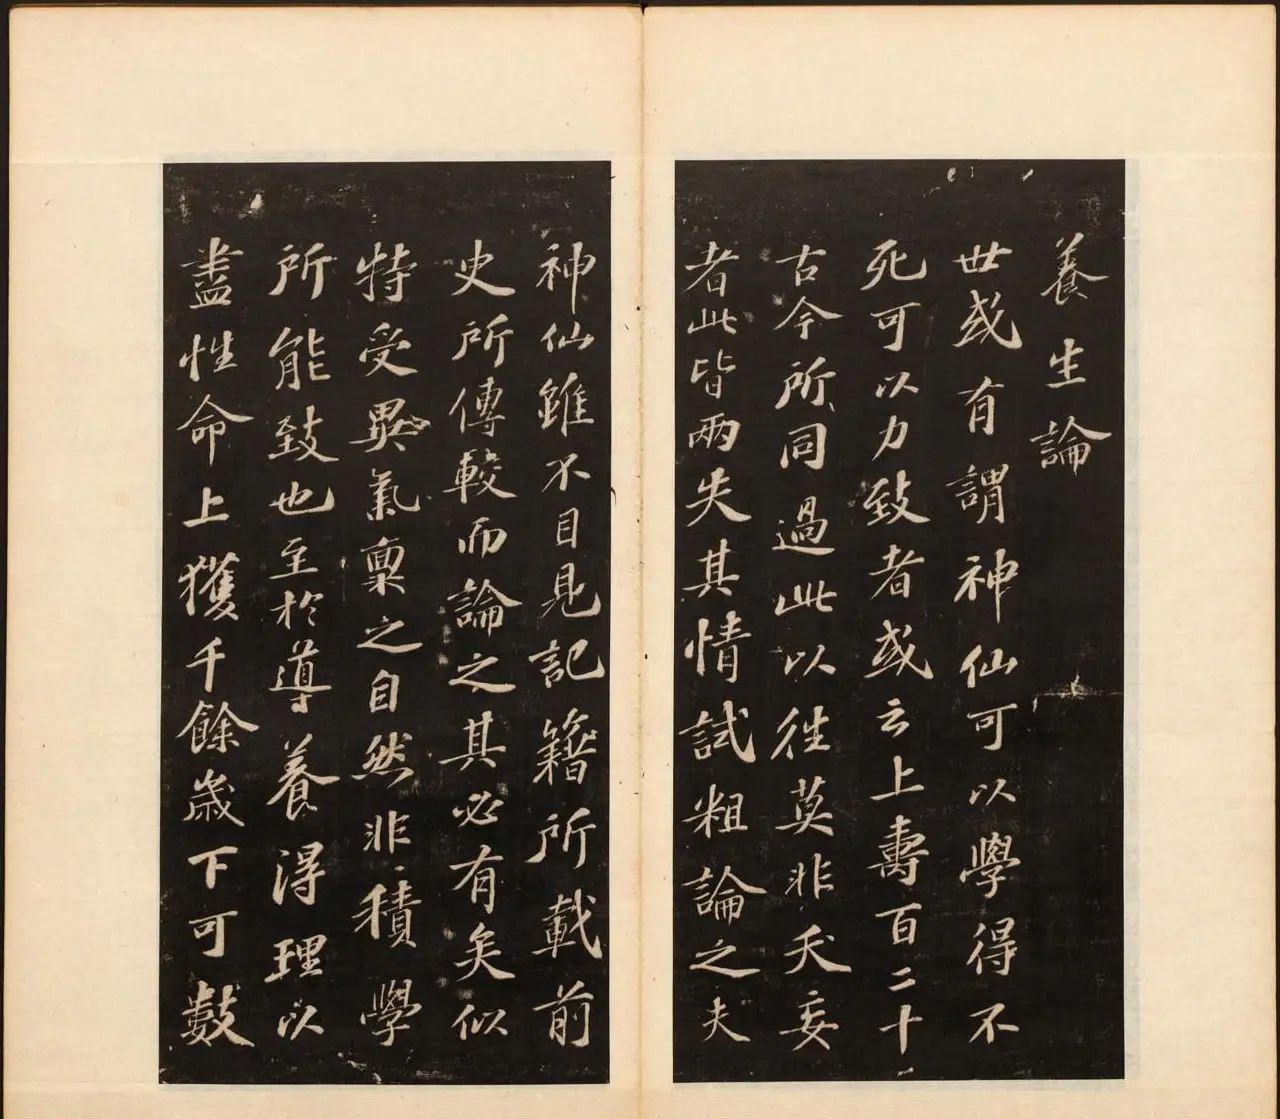 養生論
世或有謂神仙可以學得不
死可以力致者或云上壽百二十
古今所同過此以往莫非夭妄
者此皆兩失其情試粗論之夫
神仙雖不目見記籍所載前
史所傳較而論之其必有矣似
特受異氣稟之自然非積學
所能致也至於導養得理以
盡性命上獲千餘歲下可數